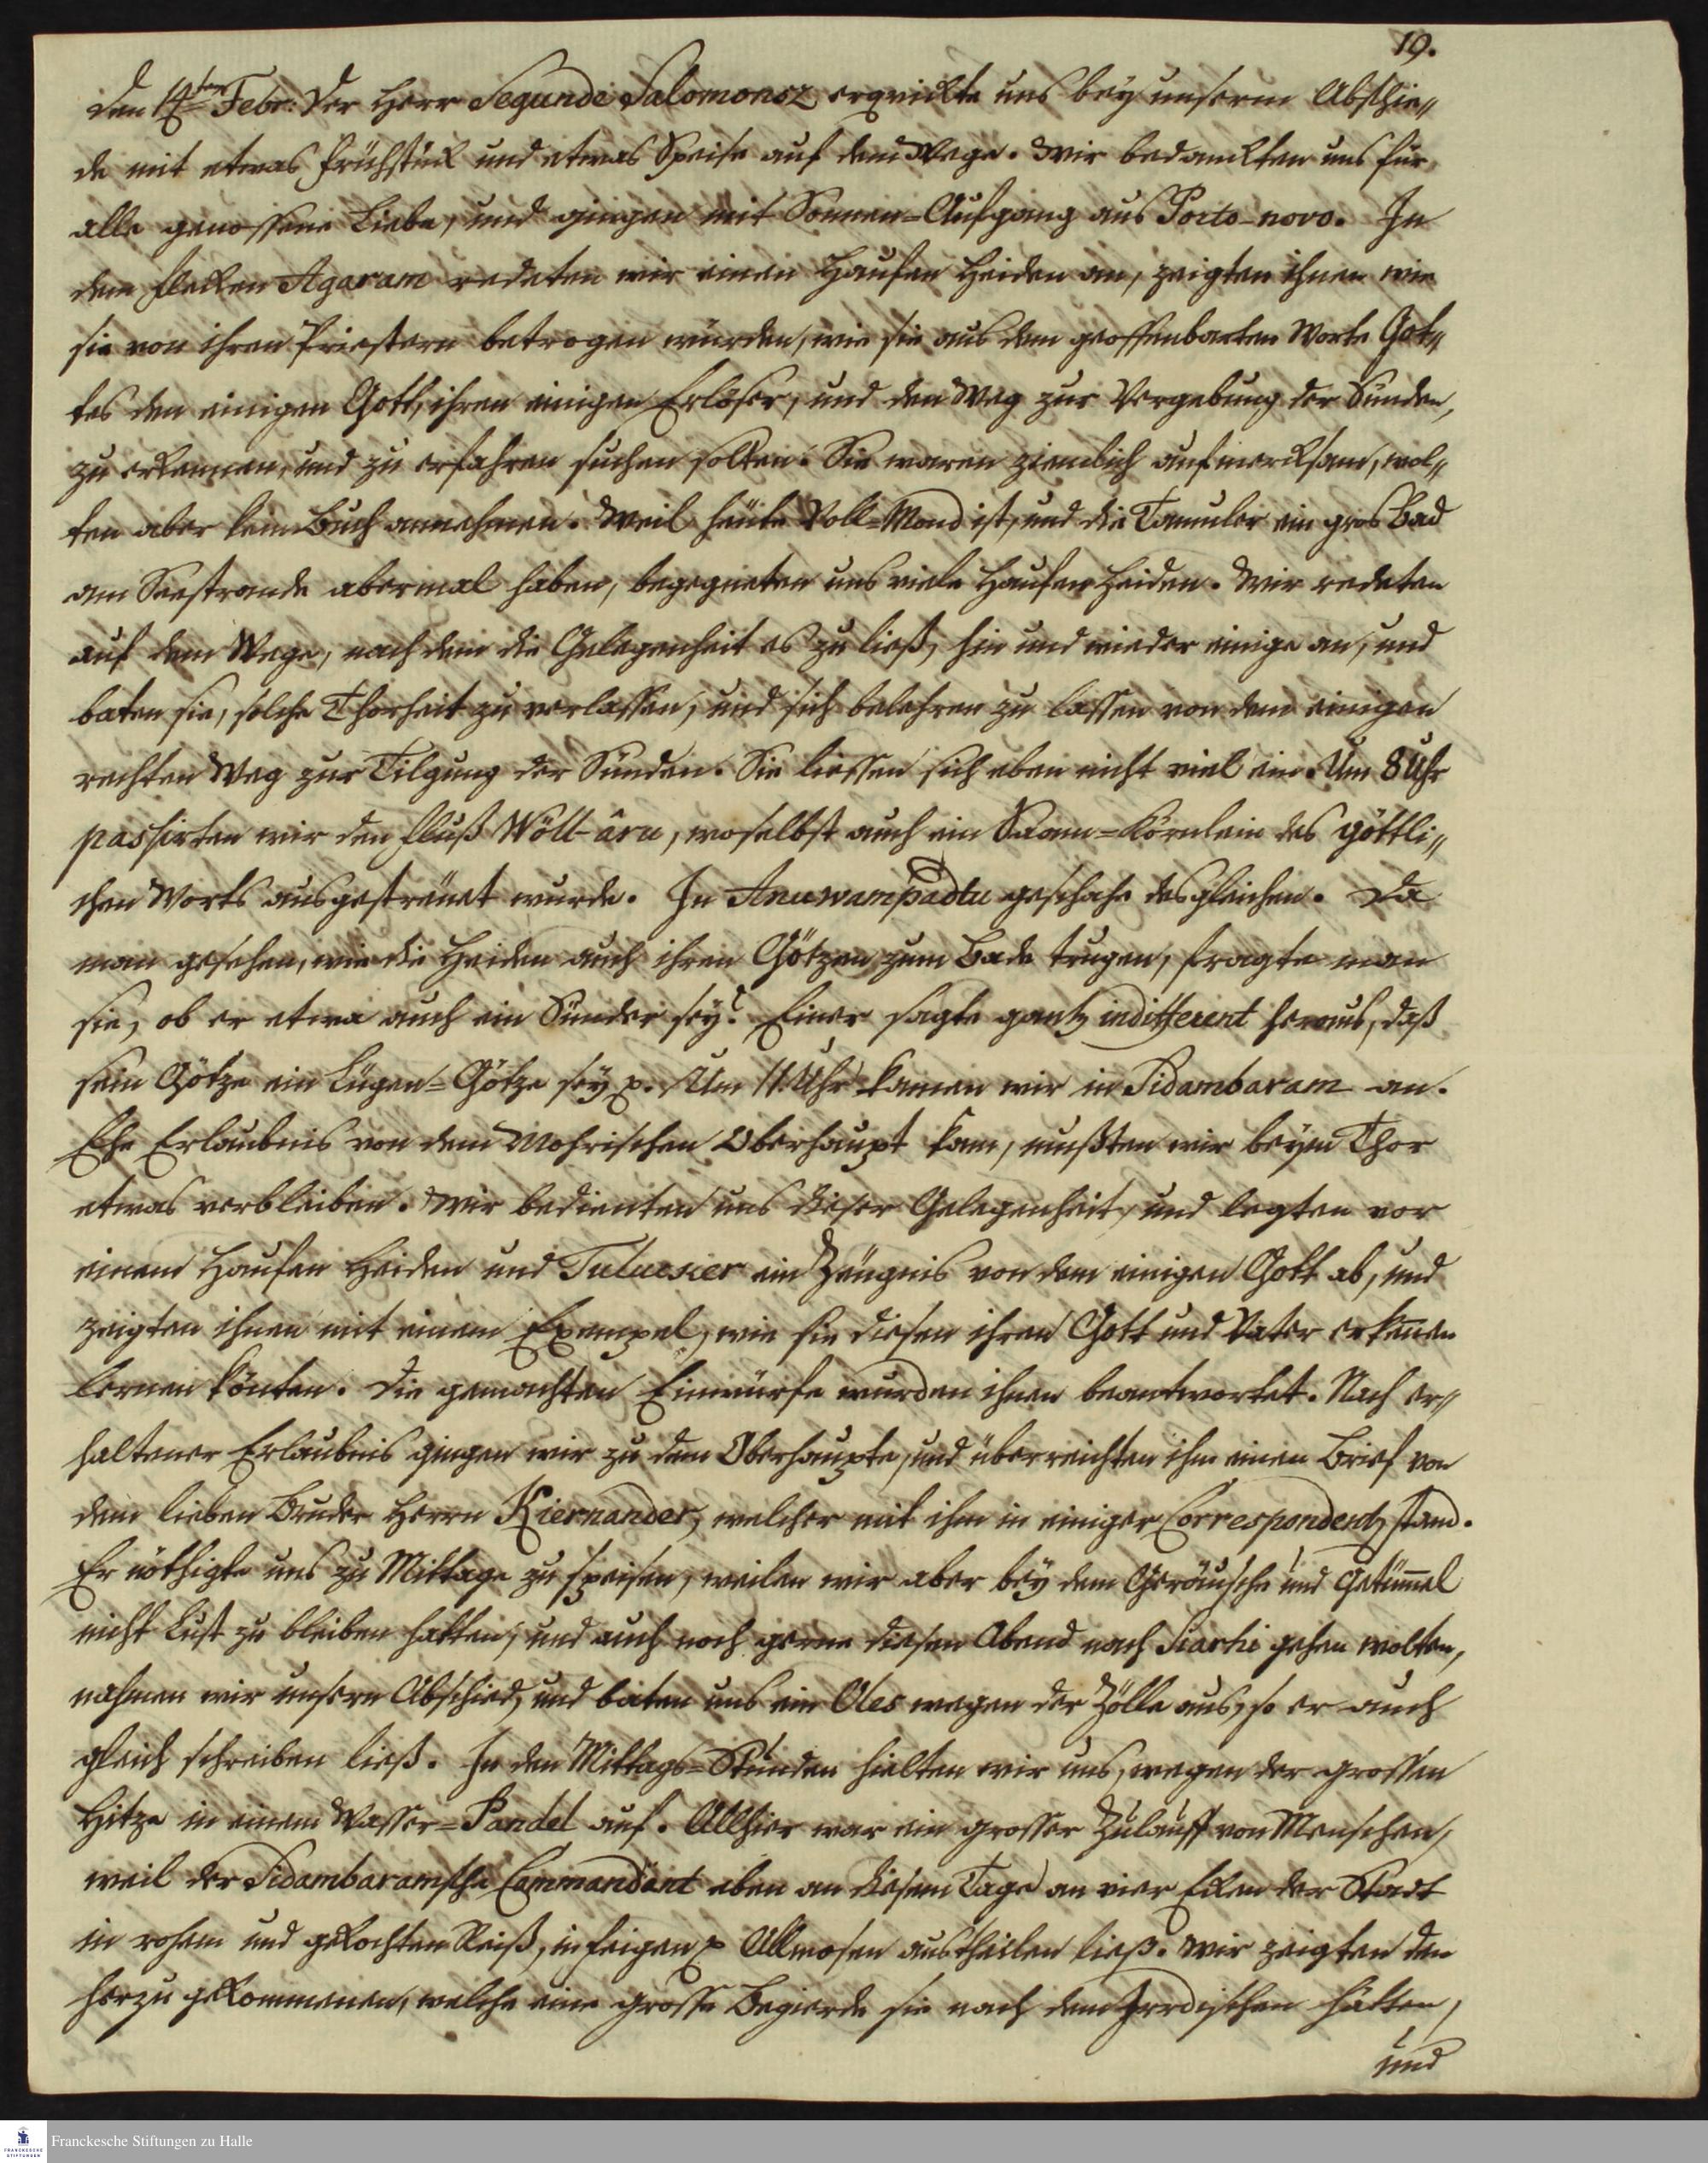 19.
den 14ten Febr: Der Herr Segunde Salomonsz erquickte uns bey unserm Abschie„
de mit etwas Frühstück und etwas Speise auf dem Wege. Wir bedanckten uns für
alle genossene Liebe, und gingen mit Sonnen=Aufgang aus Porto-novo. In
dem Flecken Agaram redeten wir einen Haufen Heiden an, zeigten ihnen wie
sie von ihren Priestern betrogen würden, wie sie aus dem geoffenbarten Worte Got„
tes den einigen Gott, ihren einigen Erlöser, und den Weg zur Vergebung der Sünden,
zu erkennen, und zu erfahren suchen solten. Sie waren ziemlich aufmercksam, wol„
ten aber kein Buch annehmen. Weil heute Voll=Mond ist, und die Tamuler ein gros Bad
am Seestrande abermal haben, begegneten uns viele Haufen Heiden. Wir redeten
auf dem Wege, nach dem die Gelegenheit es zu ließ, hin und wieder einige an, und
baten sie, solche Thorheit zu verlassen, und sich belehren zu lassen von dem einigen
rechten Weg zur Tilgung der Sünden. Sie liessen sich eben nicht viel ein. Um 8 Uhr
passirten wir den Fluß Wöll-âru, woselbst auch ein Saam=Körnlein des göttli„
chen Worts ausgestreuet wurde. In Anuwampadtu geschahe desgleichen. Da
man gesehen, wie die Heiden auch ihren Götzen zum Bade trugen, fragte man
sie, ob er etwa auch ein Sünder sey? Einer sagte gantz indifferent heraus, daß
sein Götze ein Lügen=Götze sey p. Um 11 Uhr kamen wir in Sidambaram an.
Ehe Erlaubnis von dem Mohrischen Oberhaupt kam, mußten wir beym Thor
etwas verbleiben. Wir bedienten uns dieser Gelegenheit, und legten vor
einem Haufen Heiden und Tulucsier ein Zeugnis von dem einigen Gott ab, und
zeigten ihnen mit einem Exempel, wie sie diesen ihren Gott und Vater erkennen
lernen könten. Die gemachten Einwürfe wurden ihnen beantwortet. Nach er„
haltener Erlaubnis gingen wir zu dem Oberhaupte, und überreichten ihm einen Brief von
dem lieben Bruder Herrn Kiernander, welcher mit ihm in einiger Correspondentz stand.
Er nöthigte uns zu Mittage zu speisen, weilen wir aber bey dem Geräusche und Getümmel
nicht Lust zu bleiben hatten, und auch noch gerne diesen Abend nach Siarhi gehen wolten,
nahmen wir unsern Abschied, und baten uns ein Oles wegen der Zölle aus, so er auch
gleich schreiben ließ. In den Mittags=Stunden hielten wir uns, wegen der grossen
Hitze in einem Wasser=Pandel auf. Allhier war ein grosser Zulauff von Menschen,
weil der Sidambaramsche Commandant eben an diesem Tage an vier Ecken der Stadt
in rohem und gekochten Reiß, in Feigen p Allmosen austheilen ließ. Wir zeigten den
herzu gekommenen, welche eine grosse Begierde sie nach dem Irrdischen hätten,
und
Franckesche Stiftungen zu Halle